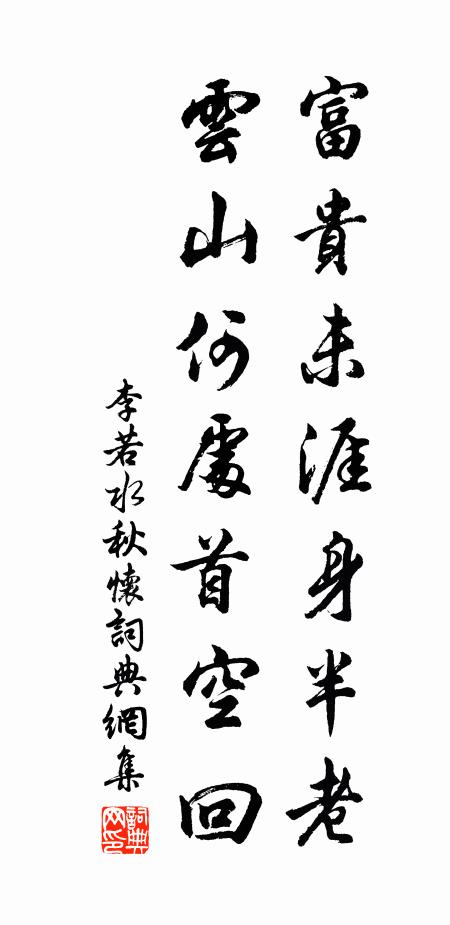 富貴未涯身半老
雲山何處首空回
李若水秋懷詞典網集
詞典网印